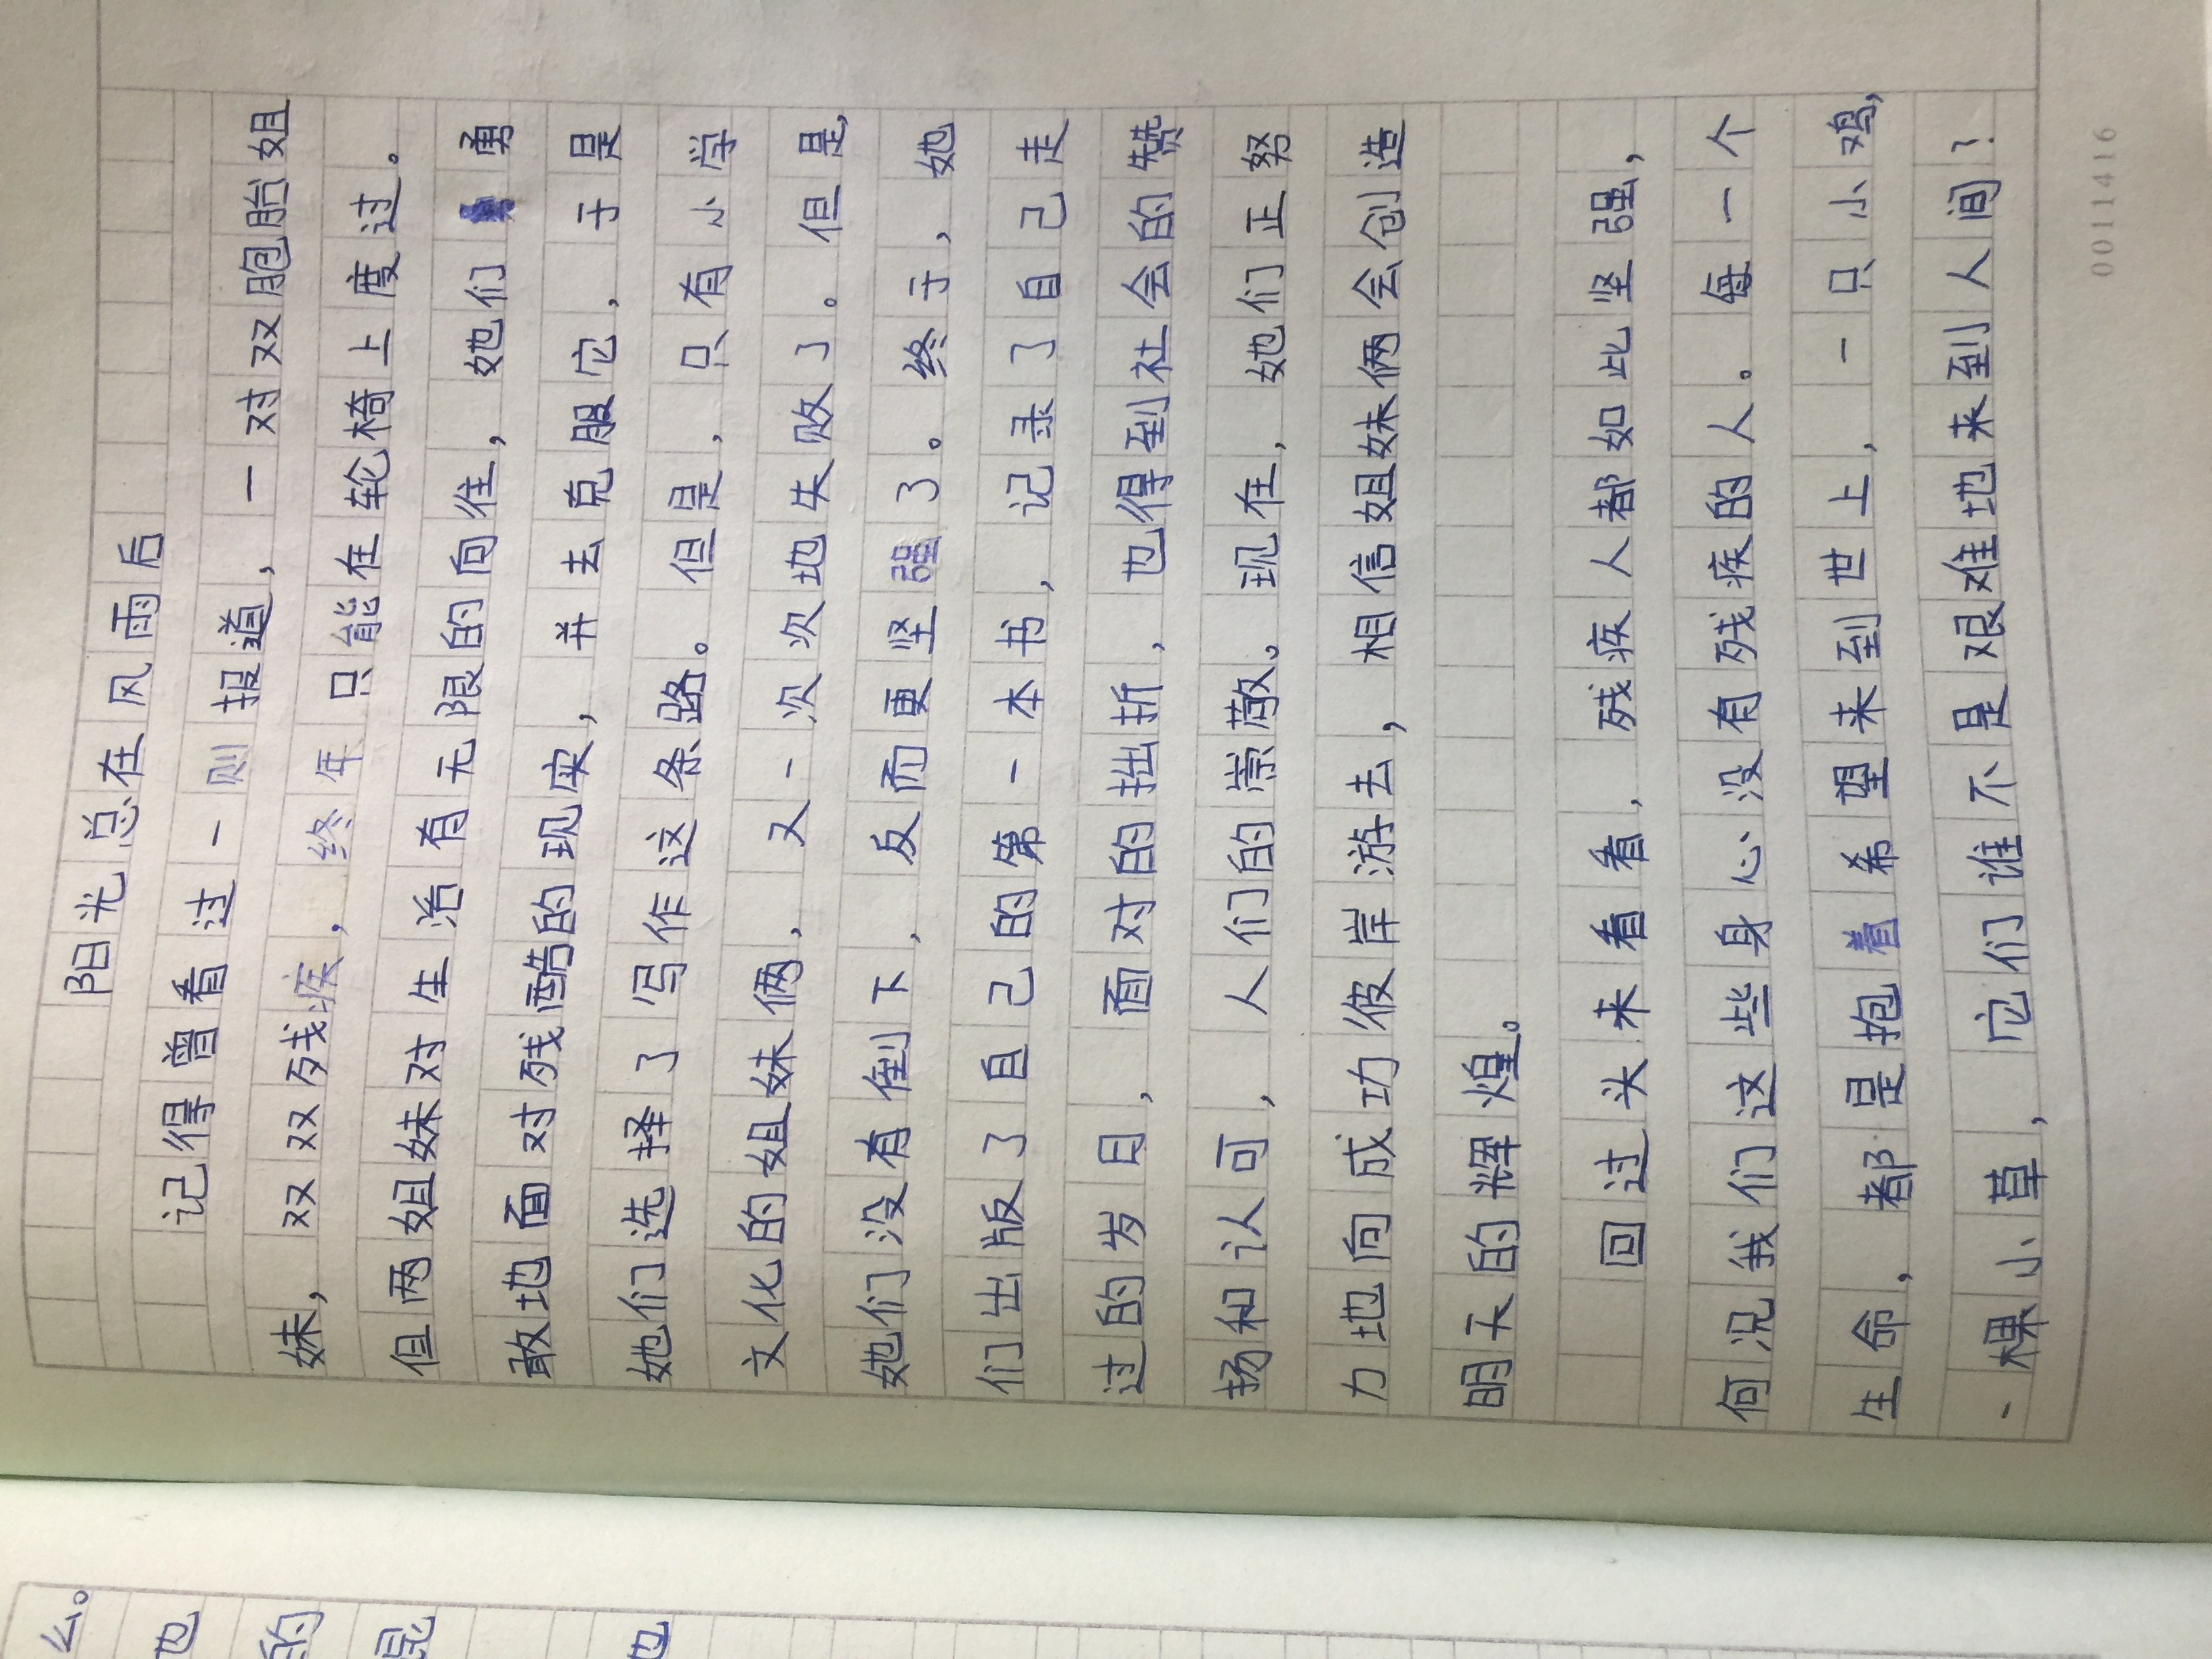 阳光总在风雨后
记得曾看过一则报道，一对双胞胎姐
妹，双双残疾，终年只能在轮椅上度过。
但两姐妹对生活有无限的向往，她们勇
敢地面对残酷的现实，并去克服它，于是
她们选择了写作这条路。但是，只有小学
文化的姐妹俩，又一次次地失败了。但是，
她们没有倒下，反而更坚强了。终于，她
们出版了自己的第一本书，记录了自己走
过的岁日，面对的拙折，也得到社会的赞
扬和认可，人们的崇敬。现在，她们正努
力地向成功彼岸游去，相信姐妹俩会创造
明天的辉煌。
回过头来看看，残疾人都如此坚强，
何况我们这些身心没有残疾的人。每一个
生命，都是抱着希望来到世上，一只小鸡，
一棵小草，它们谁不是艰难地来到人间？
0011416
么。
也
的
昆
也